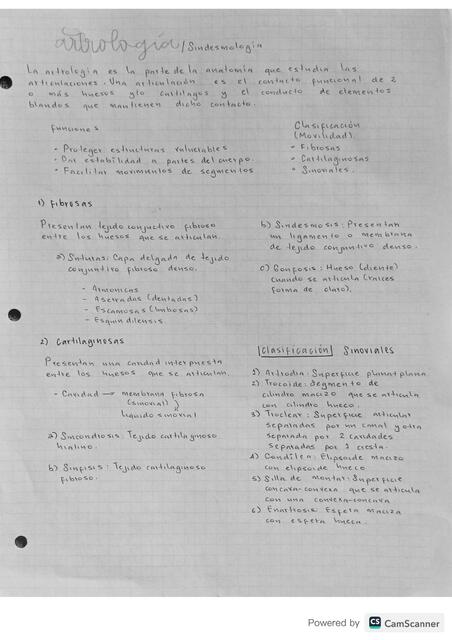 artrología / Sindesmología
La artrología es la parte de la anatomía que estudia las
articulaciones. Una articulación es el contacto funcional de 2
o más huesos y/o cartílagos y el conducto de elementos
blandos que mantienen dicho contacto.
Funciones
- Proteger estructuras vulnerables
- Dar estabilidad a partes del cuerpo.
- Facilitar movimientos de segmentos
Clasificación
(Movilidad).
- Fibrosas
- Cartilaginosas
- Sinoviales.
1) Fibrosas
Presentan tejido conjuctivo fibroso
entre los huesos que se articulan.
a) Suturas: Capa delgada de tejido
conjuntivo fibroso denso.
- Armonicas
- Aserradas (dentadas)
- Escamosas (limbosas)
- Esquindilensis.
b) Sindesmosis: Presentan
un ligamento o membrana
de tejido conjuntivo denso.
c) Gonfosis: Hueso (diente)
cuando se articula (raíces
forma de clavo).
2) Cartilaginosas
Presentan una cavidad interpuesta
entre los huesos que se articulan.
- Cavidad → membrana fibrosa
(sinovial)
líquido sinovial
a) Sincondrosis: Tejido cartilaginoso
hialino.
b) Sínfisis: Tejido cartilaginoso
fibroso.
Clasificación Sinoviales
1) Artrodia: Superficie plana plana.
2) Trocoide: Segmento de
cilindro macizo que se articula
con cilindro hueco.
3) Troclear: Superficie articular
separadas por un canal y otra
separada por 2 cavidades
separadas por 1 cresta.
4) Condílea: Elipsoide macizo
con elipsoide hueco
5) Silla de montar: Superficie
concava-convexa que se articula
con una convexa-concava
6) Enartrosis: Esfera maciza
con esfera hueca.
Powered by CS CamScanner